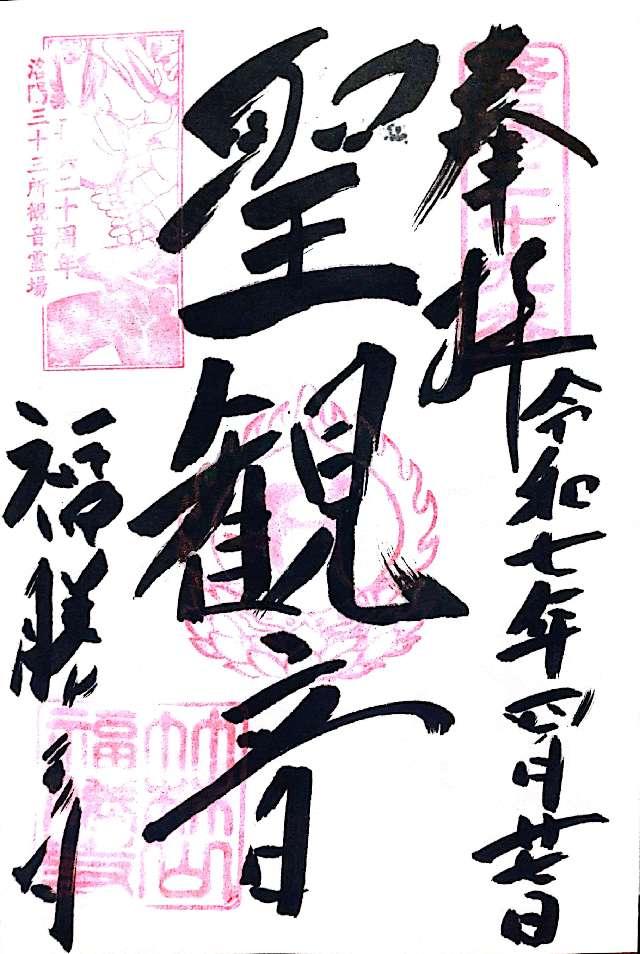 奉拝
令和七年四月廿七日
聖観音
二十周年
三十三所観音霊場
福勝寺
福勝寺